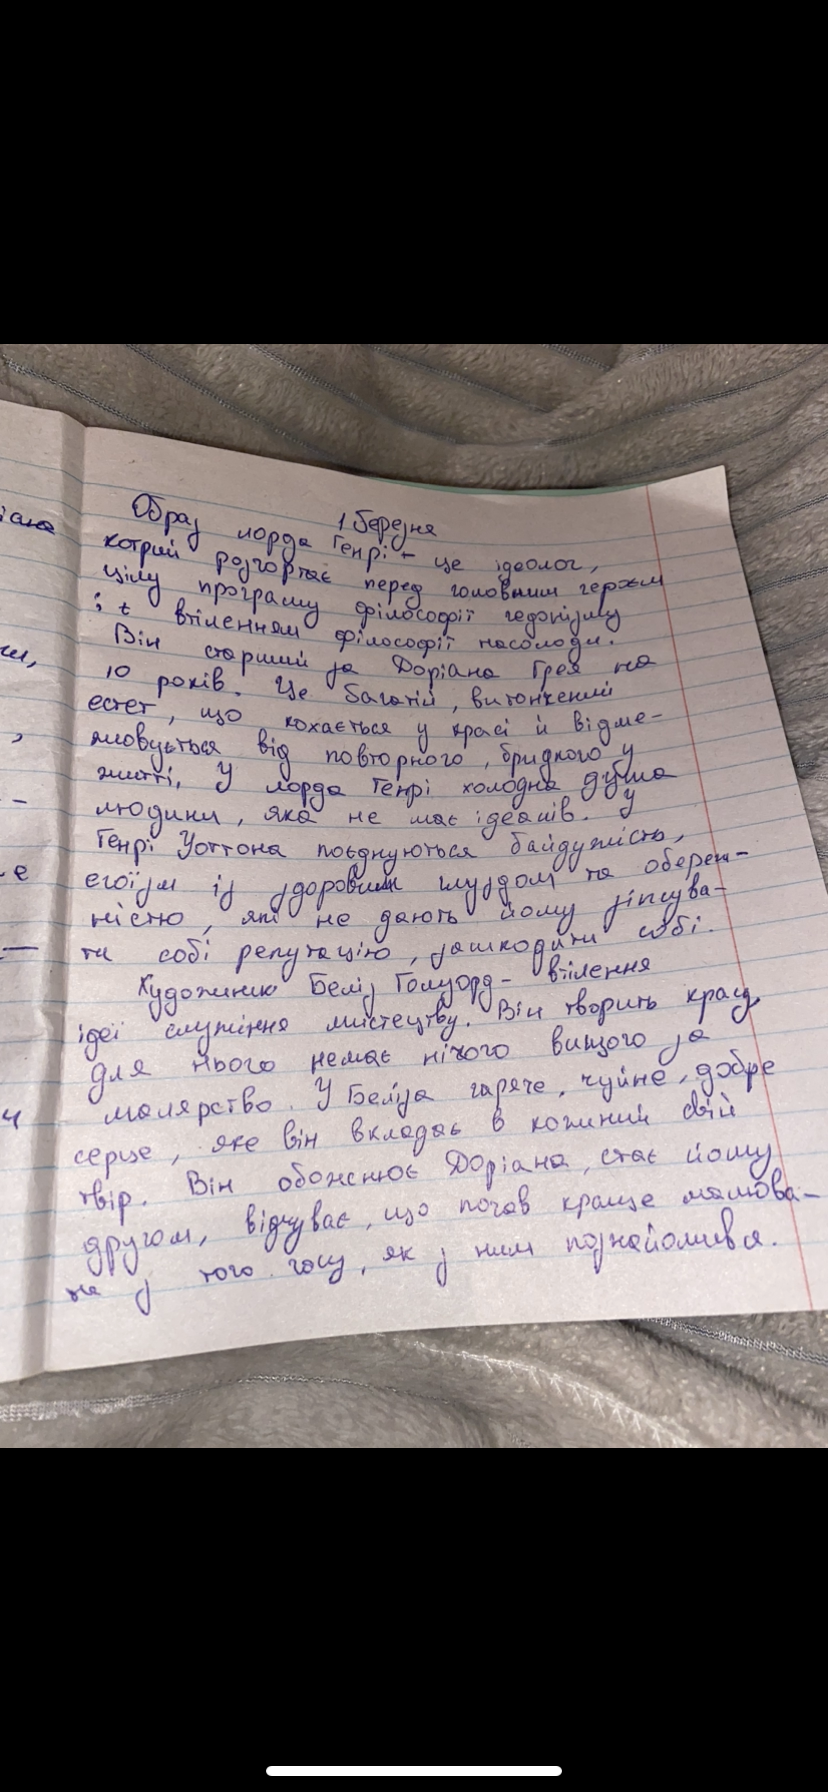 1 березня
Образ лорда Генрі - це ідеолог,
котрий розгортає перед головним героєм
цілу програму філософії гедонізму
і є втіленням філософії насолоди.
Він старший за Доріана Грея на
10 років. Це багатий, витончений
естет, що кохається у красі й відме-
жовується від повторного, бридкого у
житті. У лорда Генрі холодна душа
людини, яка не має ідеалів. У
Генрі Уоттона поєднуються байдужість,
егоїзм із здоровим глуздом та обереж-
ністю, які не дають йому зіпсува-
ти собі репутацію, зашкодити собі.
Художник Безіл Голуорд - втілення
ідеї служіння мистецтву. Він творить красу,
для нього немає нічого вищого за
малярство. У Безіла гаряче, чуйне, добре
серце, яке він вкладає в кожний свій
твір. Він обожнює Доріана, стає йому
другом, відчуває, що почав краще малюва-
ти з того часу, як з ним познайомився.